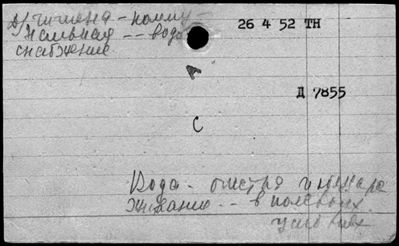 Гигиена - комму-
нальная -- водо
снабжение.
26 4 52 ТН
Д 7855
А
С
Вода - очистка и обезза
живание -- в полевых
условиях